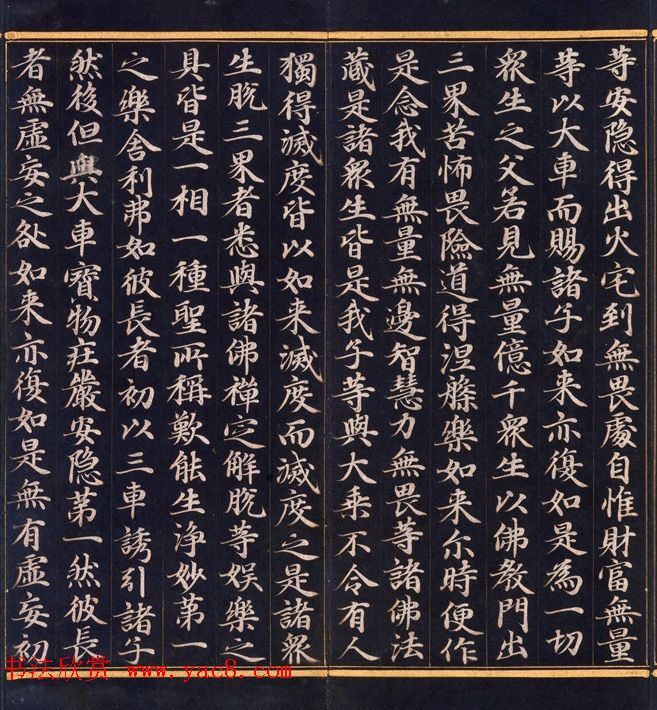 等安隐得出火宅到無畏處自惟財富無量
等以大車而賜諸子如来亦復如是為一切
衆生之父若見無量億千衆生以佛教門出
三界苦怖畏險道得涅槃樂如来尒時便作
是念我有無量無邊智慧力無畏等諸佛法
藏是諸衆生皆是我子等與大乗不令有人
獨得滅度皆以如来滅度而滅度之是諸衆
生脫三界者悉與諸佛禪定解脫等娛樂之
具皆是一相一種聖所稱歎能生淨妙第一
之樂舍利弗如彼長者初以三車誘引諸子
然後但與大車寶物莊嚴安隐第一然彼長
者無虛妄之咎如来亦復如是無有虛妄初
书法欣赏 www.yac8.com